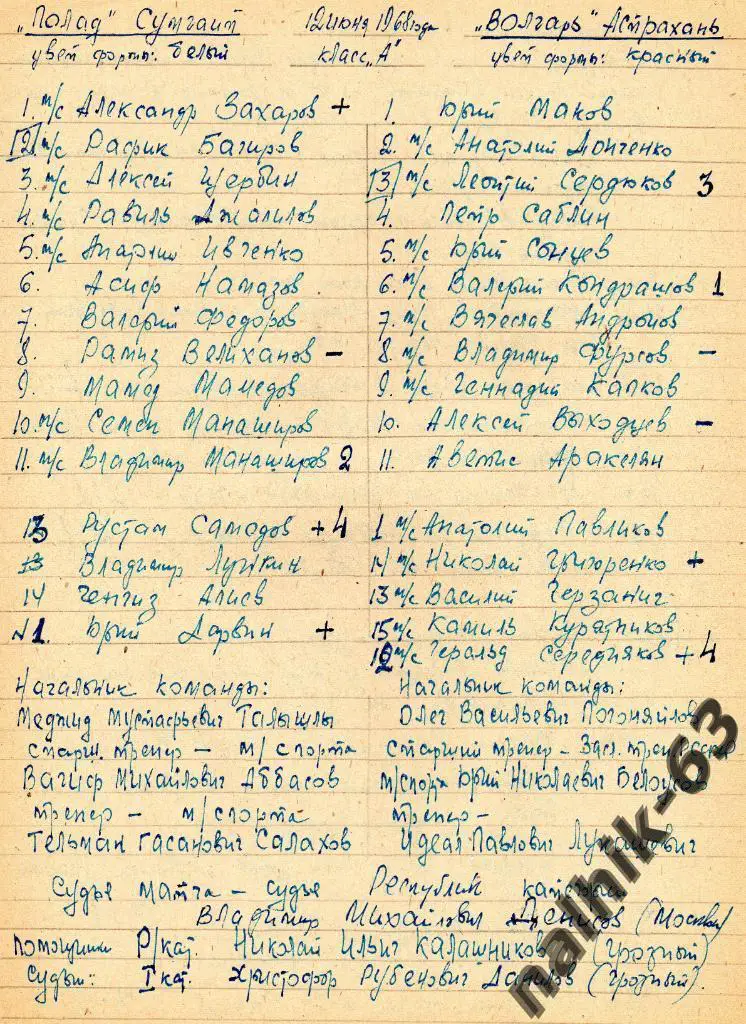 "Полад" Сумгаит 12 июня 1968 года "Волгарь" Астрахань
цвет формы: белый класс "А" цвет формы: красный
1. м/с Александр Захаров +
2. м/с Рафик Багиров
3. м/с Алексей Щербин
4. м/с Равиль Джалилов
5. м/с Анатолий Ивченко
6. Асиф Намазов
7. Валерий Федоров
8. Рамиз Велиханов –
9. Мамед Мамедов
10. м/с Семен Манаширов
11. м/с Владимир Манаширов 2
13 Рустам Самедов + 4
13 Владимир Лункин
14 Ченгиз Алиев
1. Юрий Дарвин +
Начальник команды:
Меджид Мустафьевич Талышлы
старш. тренер – м/спорта
Вагиф Михайлович Аббасов
тренер – м/спорта
Тельман Гасанович Салахов
1. Юрий Маков
2. м/с Анатолий Донченко
3 м/с Леонтий Сердюков 3
4. Петр Саблин
5. м/с Юрий Сонцев
6. м/с Валерий Кондрашов 1
7. м/с Вячеслав Андронов
8. м/с Владимир Фурсов –
9. м/с Геннадий Капков
10. Алексей Выходцев –
11. Аветис Аракелян
1 м/с Анатолий Павликов
14 м/с Николай Григоренко +
13 м/с Василий Герзанич
15 м/с Камиль Куратников
12 м/с Геральд Середняков + 4
Начальник команды:
Олег Васильевич Погоняйлов
старший тренер – Засл. тренер
м/спорта Юрий Николаевич Белоусов
тренер –
Идеал Павлович Лукашевич
Судья матча – судья Республик категории
Владимир Михайлович Денисов (Москва)
Помощники Р/кат. Николай Ильич Калашников (Грозный)
судьи: I кат. Христофор Рубенович Данилов (Грозный).
naihik-63